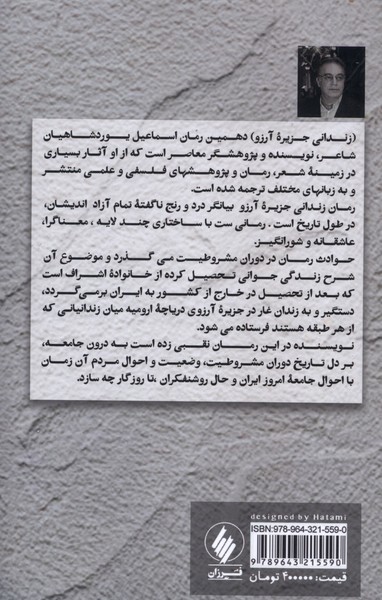 (زندانی جزیرۀ آرزو) دهمین رمان اسماعیل یوردشاهیان
شاعر، نویسنده و پژوهشگر معاصر است که از او آثار بسیاری
در زمینۀ شعر، رمان و پژوهشهای فلسفی و علمی منتشر
و به زبانهای مختلف ترجمه شده است.
رمان زندانی جزیرۀ آرزو بیانگر درد و رنج ناگفتۀ تمام آزاد اندیشان،
در طول تاریخ است. رمانی ست با ساختاری چند لایه، معناگرا،
عاشقانه و شورانگیز.
حوادث رمان در دوران مشروطیت می گذرد و موضوع آن
شرح زندگی جوانی تحصیل کرده از خانوادۀ اشراف است
که بعد از تحصیل در خارج از کشور به ایران برمی‌گردد،
دستگیر و به زندان غار در جزیرۀ آرزوی دریاچۀ ارومیه میان زندانیانی که
از هر طبقه هستند فرستاده می شود.
نویسنده در این رمان نقبی زده است به درون جامعه،
بر دل تاریخ دوران مشروطیت، وضعیت و احوال مردم آن زمان
با احوال جامعۀ امروز ایران و حال روشنفکران ،تا روزگار چه سازد.
designed by Hatami
ISBN: 978-964-321-559-0
9 789643 215590
فرزان
قیمت: ۴۰۰۰۰۰ تومان